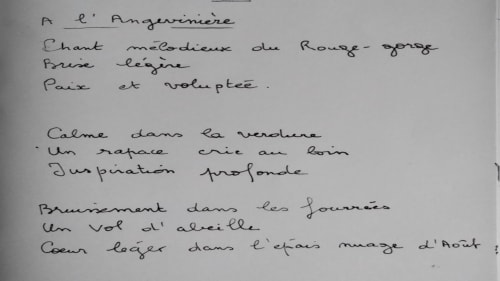 A l'Angevinière
Chant mélodieux du Rouge-gorge
Brise légère
Paix et voluptée.
Calme dans la verdure
Un rapace crie au loin
Inspiration profonde
Bruissement dans les fourrées
Un vol d'abeille
Coeur léger dans l'épais nuage d'Août